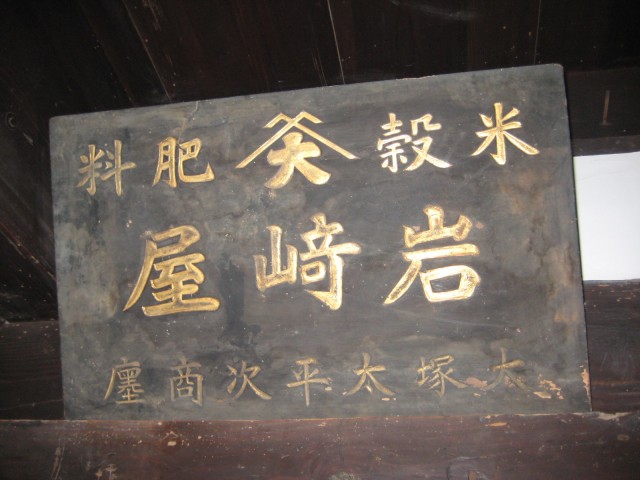 米穀 大 肥料
岩﨑屋
大塚太平次商廛